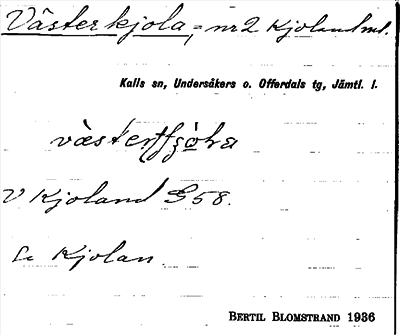 Västerkjola, = nr 2 Kjoland ml.
Kalls sn, Undersåkers o. Offerdals tg, Jämtl. l.
V Kjoland G58.
Kjolan
BERTIL BLOMSTRAND 1936